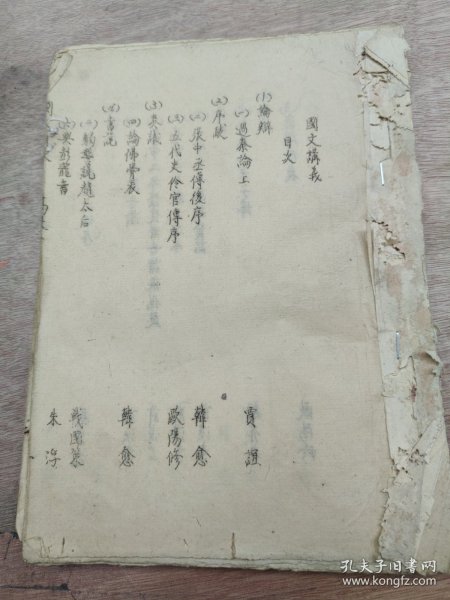 國文講義
目次
(1) 論辯
(一) 過秦論上 賈誼
(2) 序跋
(二) 張中丞傳後序 韓愈
(三) 五代史伶官傳序 歐陽修
(3) 奏議
(四) 論佛骨表 韓愈
(4) 書說
(五) 觸讋說趙太后 戰國策
(六) 與彭寵書 朱浮
孔夫子旧书网
www.kongfz.com